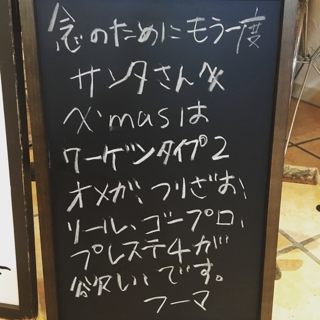 念のためにもう一度
サンタさんへ
X'masは
ワーゲンタイプ2
オメガ、つりざお、
リール、ゴープロ、
プレステ4が
欲しいです。
フーマ